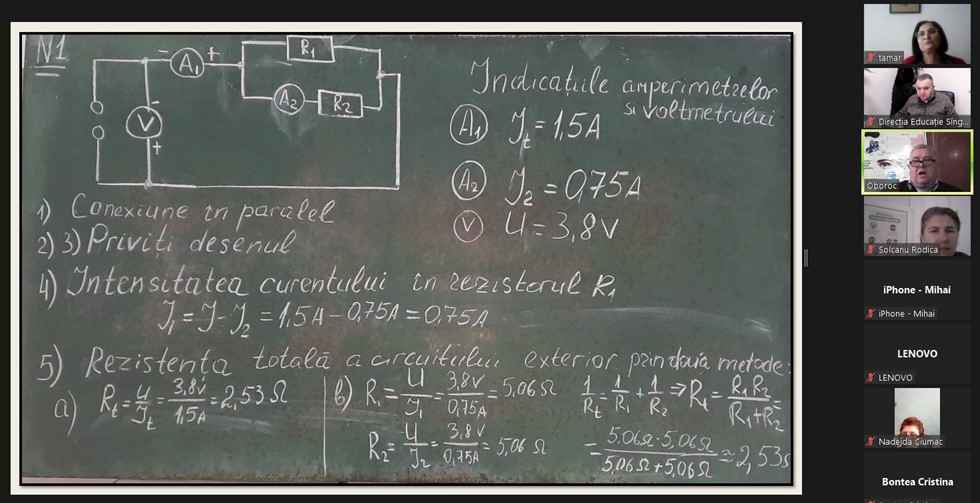 N1
- A1 +
R1
A2 R2
V
-
+
Indicațiile amperimetrelor
si voltmetrului
A1 It = 1,5A
A2 I2 = 0,75A
V U = 3,8V
1) Conexiune in paralel
2) 3) Priviți desenul
4) Intensitatea curentului in rezistorul R1
I1 = I - I2 = 1,5A - 0,75A = 0,75A
5) Rezistența totală a circuitului exterior prin două metode:
a) Rt = U/It = 3,8V/1,5A = 2,53 Ω
b) R1 = U/I1 = 3,8V/0,75A = 5,06 Ω
R2 = U/I2 = 3,8V/0,75A = 5,06 Ω
1/Rt = 1/R1 + 1/R2 ⇒ Rt = R1 R2/R1+R2 =
= 5,06Ω·5,06Ω/5,06Ω+5,06Ω ≈ 2,53Ω
tamar
Direcția Educație Sîng...
Oboroc
Solcanu Rodica
iPhone - Mihai
iPhone - Mihai
LENOVO
LENOVO
Nadejda Ciumac
Bontea Cristina